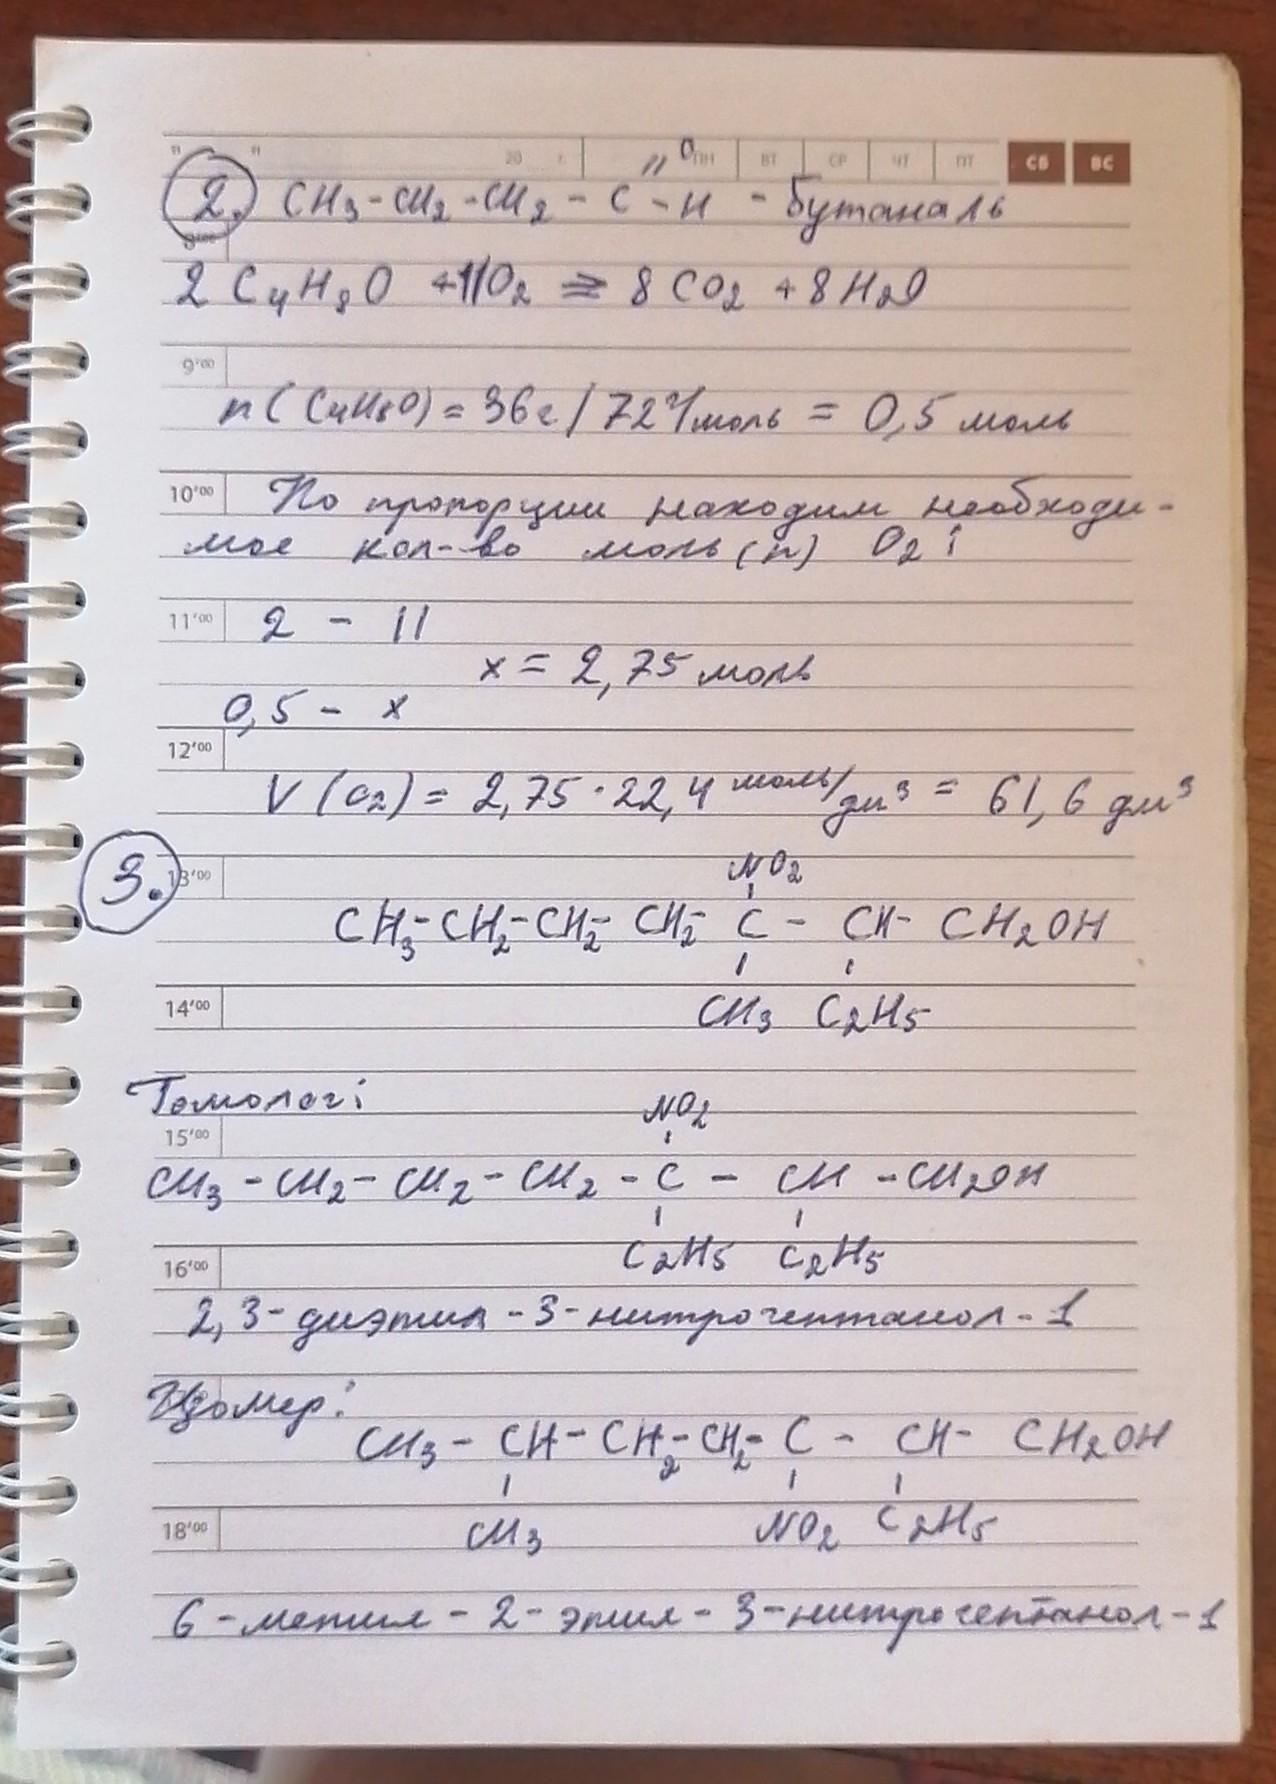 " " 20 г. ПН ВТ СР ЧТ ПТ СБ ВС
O
//
2. CH3-CH2-CH2-C-H - Бутаналь
2 C4H8O +11O2 = 8CO2 +8H2O
9'00
n(C4H8O)=36г/72г/моль = 0,5 моль
10'00 По пропорции находим необходи-
мое кол-во моль(n) O2:
11'00 2 - 11
x = 2,75 моль
0,5 - x
12'00
V(O2)= 2,75·22,4 моль/дм³ = 61,6 дм³
NO2
3. 13'00
CH3-CH2-CH2-CH2-C-CH-CH2OH
14'00 CH3 C2H5
Гомолог:
NO2
15'00
CH3-CH2-CH2-CH2-C-CH-CH2OH
C2H5 C2H5
16'00
2,3-диэтил-3-нитрогептанол-1
Изомер:
CH3-CH-CH2-CH2-C-CH-CH2OH
18'00 CH3 NO2 C2H5
6-метил-2-этил-3-нитрогептанол-1